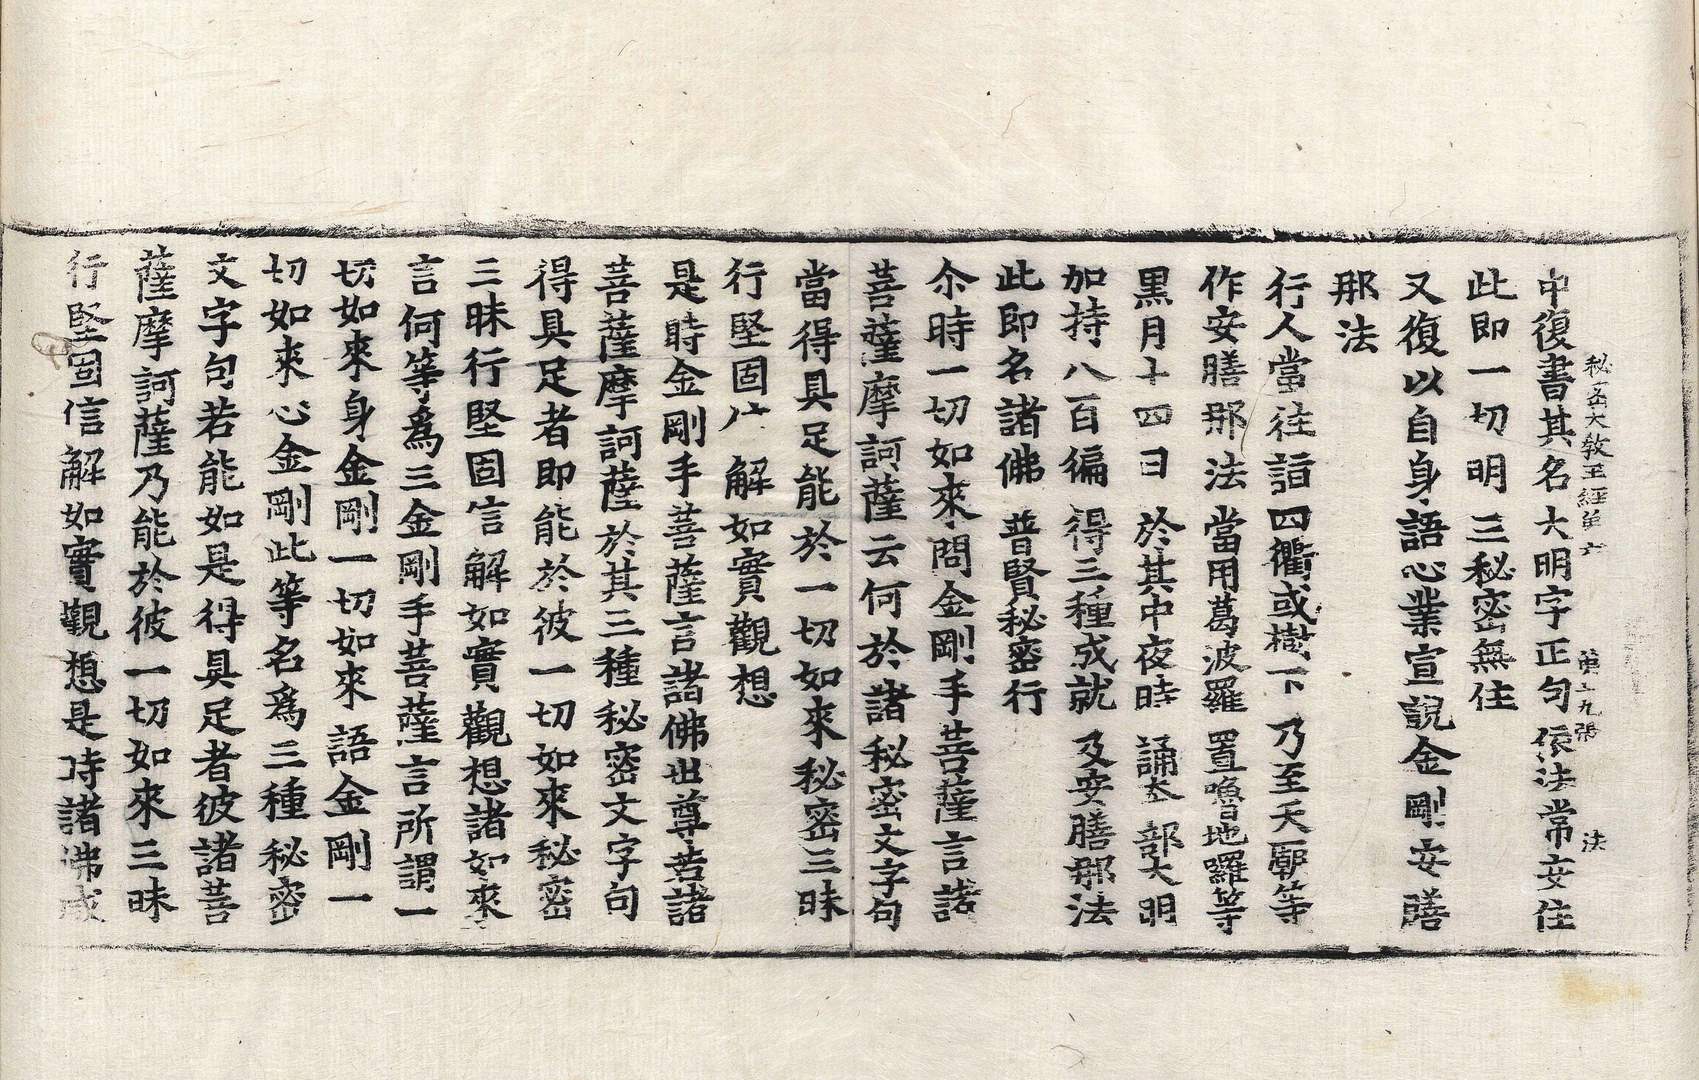 秘密大教王經第六 第十九張 法
中復書其名大明字正句 依法常安住
此即一切明 三秘密無住
又復以自身語心業宣說金剛安膳
那法
行人當往詣四衢或樹下 乃至天廟等
作安膳那法 當用葛波羅 置嚕地囉等
黒月十四日 於其中夜時 誦本部大明
加持八百徧 得三種成就 及安膳那法
此即名諸佛 普賢秘密行
尒時一切如來問金剛手菩薩言諸
菩薩摩訶薩云何於諸秘密文字句
當得具足能於一切如來秘密三昧
行堅固 解如實觀想
是時金剛手菩薩言諸佛世尊若諸
菩薩摩訶薩於其三種秘密文字句
得具足者即能於彼一切如來秘密
三昧行堅固信解如實觀想諸如來
言何等爲三金剛手菩薩言所謂一
切如來身金剛一切如來語金剛一
切如來心金剛此等名爲三種秘密
文字句若能如是得具足者彼諸菩
薩摩訶薩乃能於彼一切如來三昧
行堅固信解如實觀想是時諸佛咸